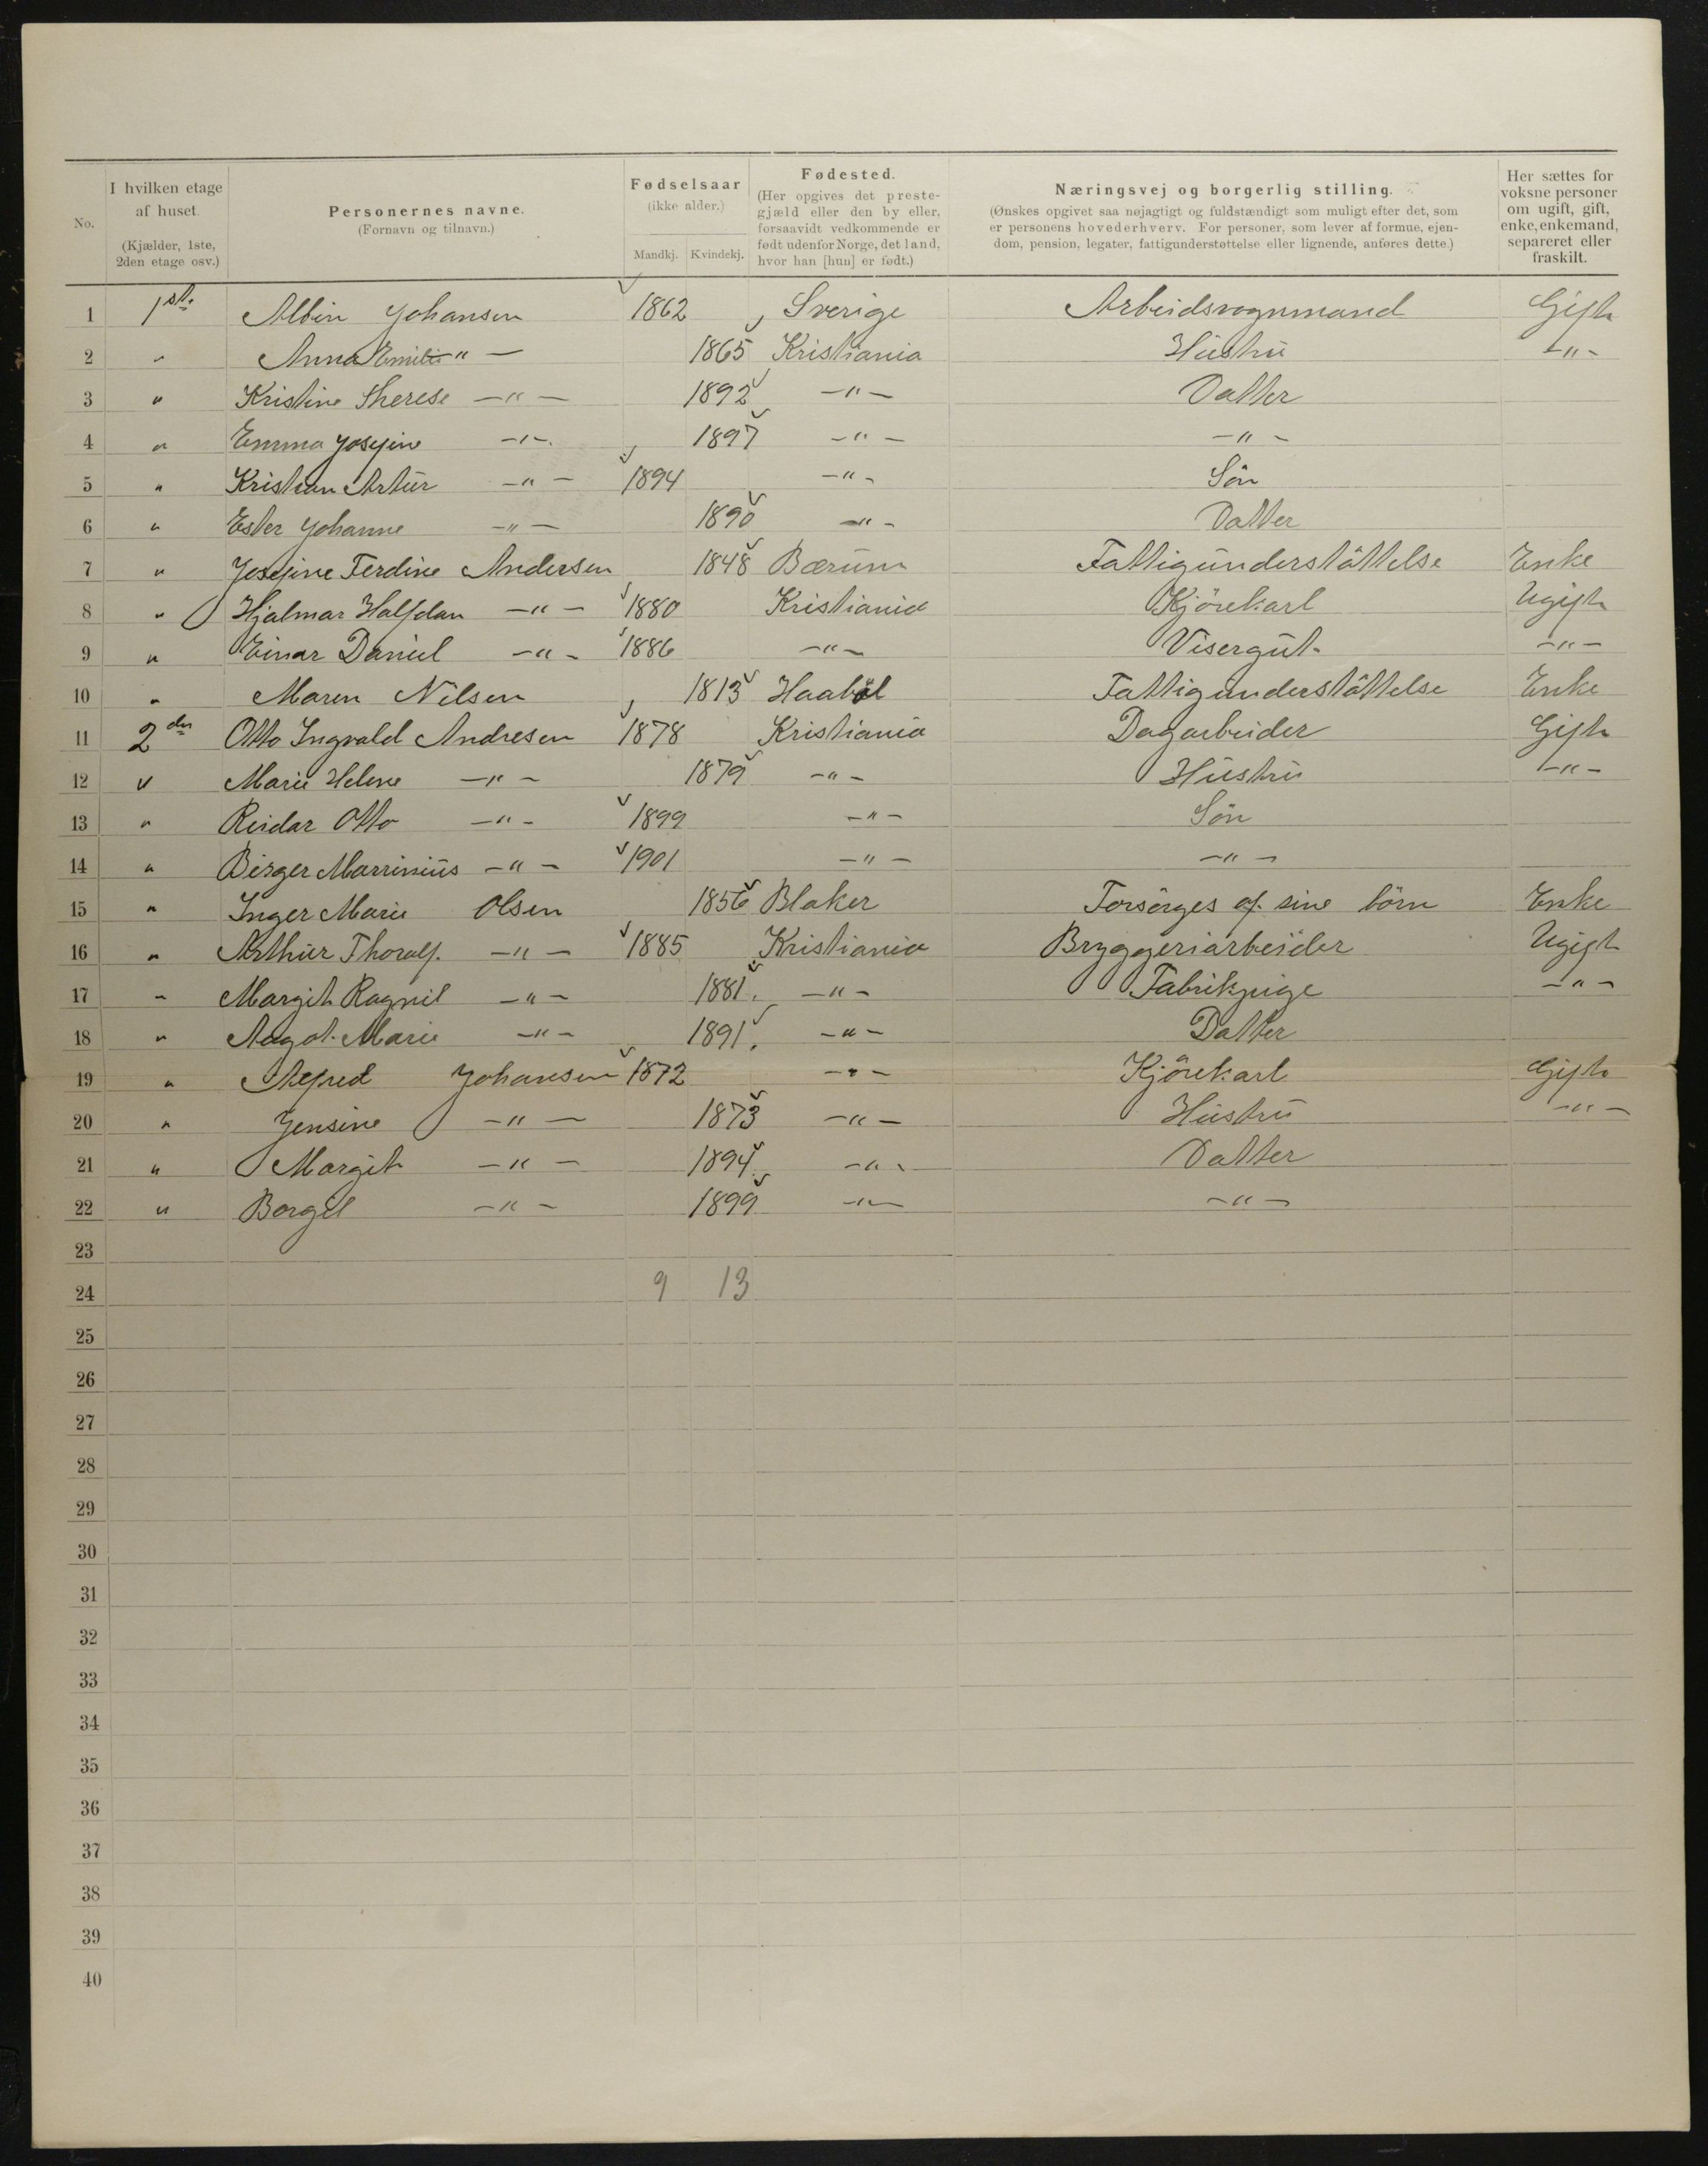 No. | I hvilken etage af huset. (Kjælder, 1ste, 2den etage osv.) | Personernes navne. (Fornavn og tilnavn.) | Fødselsaar (ikke alder.) Mandkj. Kvindekj. | Fødested. (Her opgives det prestegjæld eller den by eller, forsaavidt vedkommende er født udenfor Norge, det land, hvor han [hun] er født.) | Næringsvej og borgerlig stilling. (Ønskes opgivet saa nøjagtigt og fuldstændigt som muligt efter det, som er personens hovederhverv. For personer, som lever af formue, ejendom, pension, legater, fattigunderstøttelse eller lignende, anføres dette.) | Her sættes for voksne personer om ugift, gift, enke, enkemand, separeret eller fraskilt.
1 1ste Albin Johansen 1862 Sverige Arbeidsvognmand Gift
2 " Anna Emilie " — 1865 Kristiania Hustru -"-
3 " Kristine Therese —"— 1892 —"— Datter
4 " Emma Josefine —"— 1897 —"— —"—
5 " Kristian Artur —"— 1894 —"— Sön
6 " Ester Johanne —"— 1890 —"— Datter
7 " Josefine Ferdine Andersen 1848 Bærum Fattigunderstöttelse Enke
8 " Hjalmar Halfdan —"— 1880 Kristiania Kjörekarl Ugift
9 " Einar Daniel —"— 1886 —"— Visergut —"—
10 " Maren Nilsen 1813 Haaböl Fattigunderstöttelse Enke
11 2den Otto Ingvald Andresen 1878 Kristiania Dagarbeider Gift
12 " Marie Helene —"— 1879 —"— Hustru —"—
13 " Reidar Otto —"— 1899 —"— Sön
14 " Birger Marrinius —"— 1901 —"— —"—
15 " Inger Marie Olsen 1856 Blaker Forsörges af sine börn Enke
16 " Arthur Thoralf —"— 1885 Kristiania Bryggeriarbeider Ugift
17 " Margit Ragnil —"— 1881. —"— Fabrikpige —"—
18 " Aagot Marie —"— 1891. —"— Datter
19 " Alfred Johansen 1872 —"— Kjörekarl Gift
20 " Jensine —"— 1873 —"— Hustru —"—
21 " Margit —"— 1894 —"— Datter
22 " Borgil —"— 1899 —"— —"—
23
24 9 13
25
26
27
28
29
30
31
32
33
34
35
36
37
38
39
40